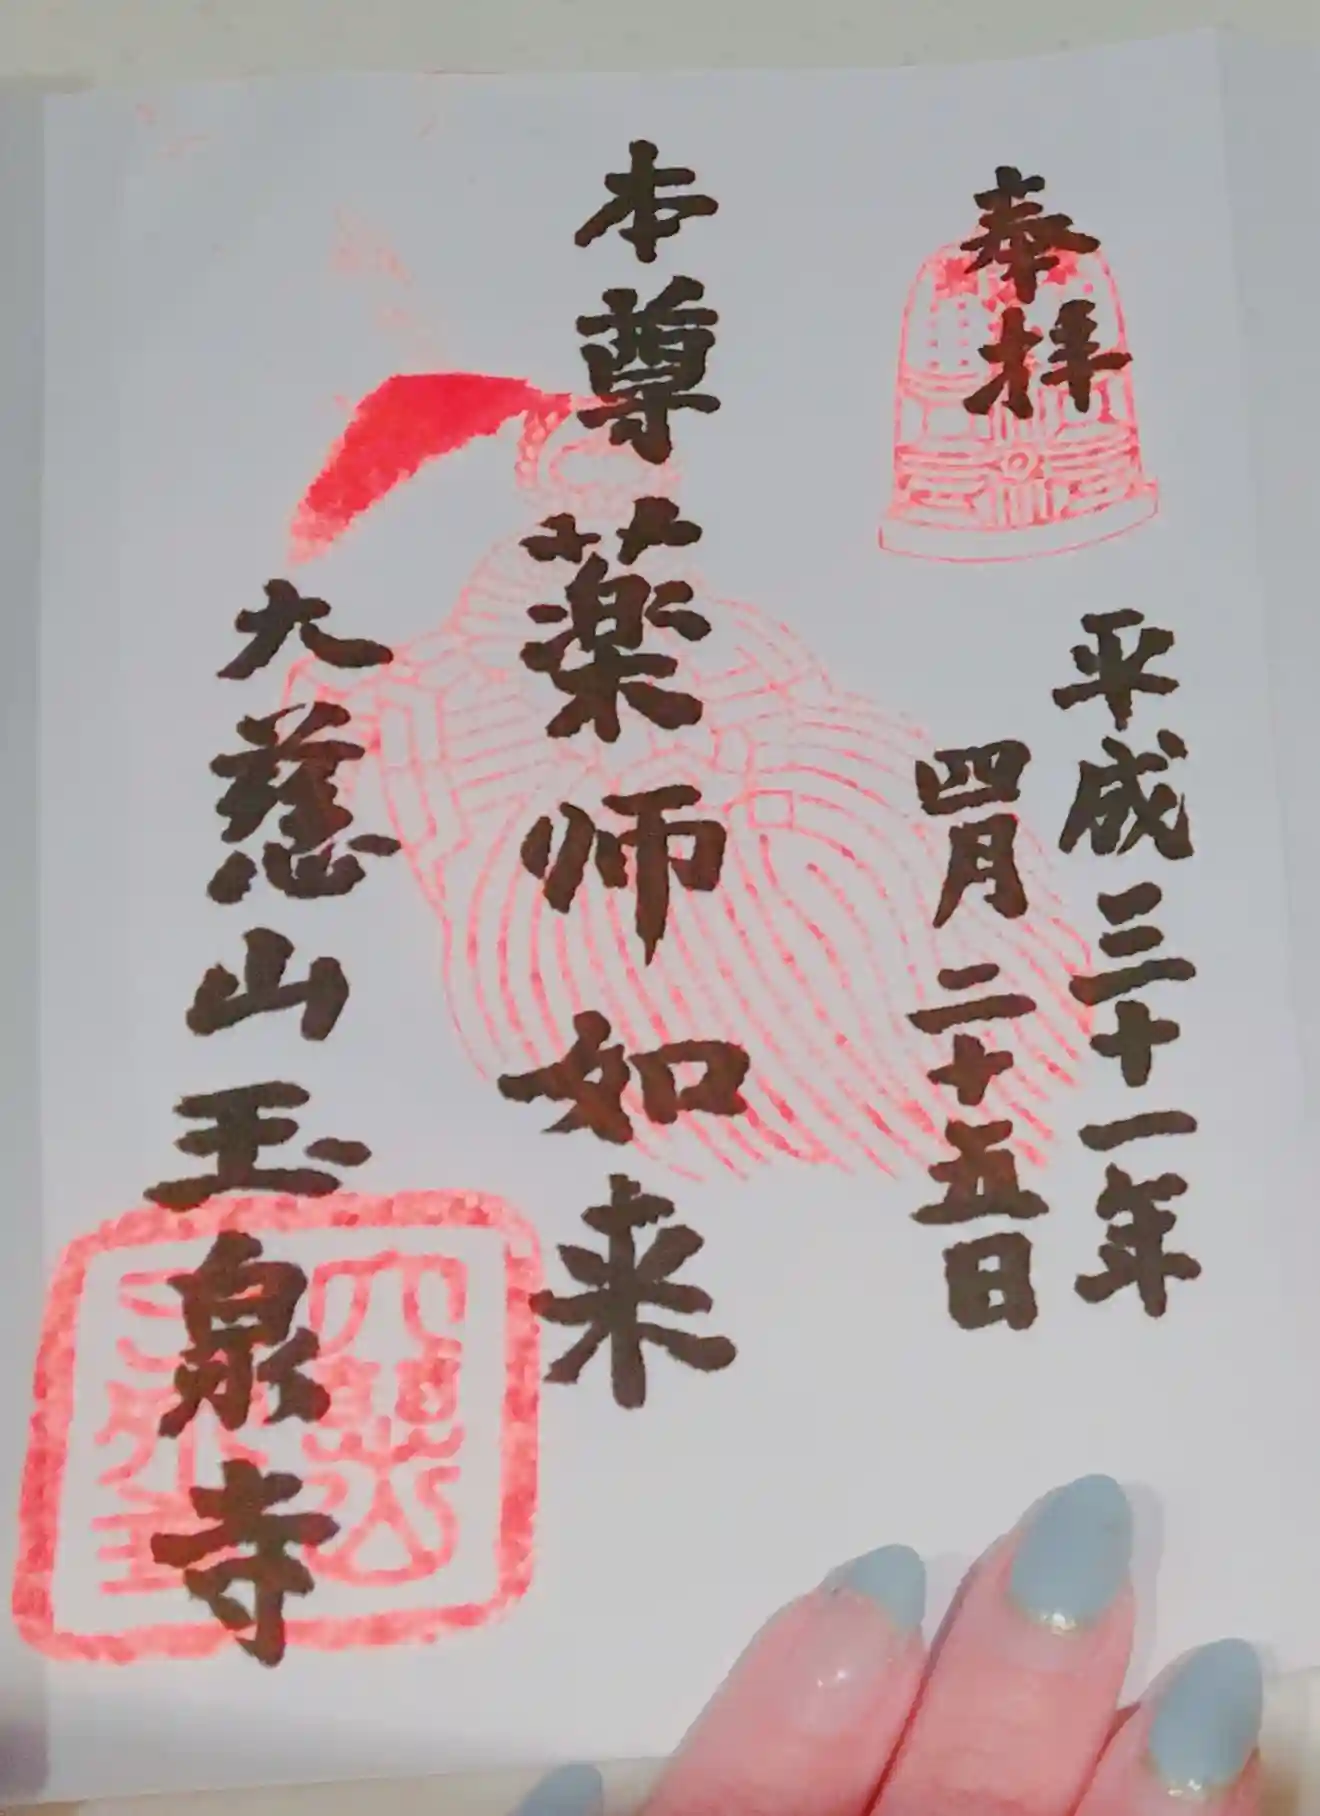 奉拝
平成三十一年
四月二十五日
本尊薬师如来
大慈山玉泉寺